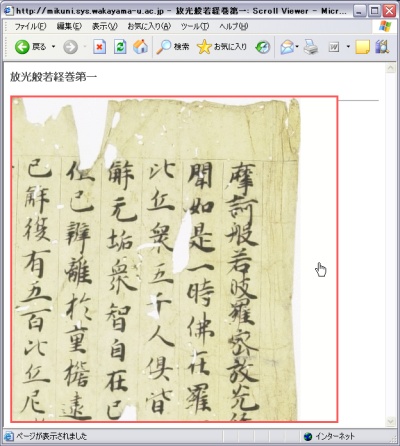 http://mikuni.sys.wakayama-u.ac.jp - 放光般若経巻第一: Scroll Viewer - Micr...
ファイル(F) 編集(E) 表示(V) お気に入り(A) ツール(T) ヘルプ(H)
戻る 検索 お気に入り
放光般若経巻第一
摩訶般若波羅蜜放光
聞如是一時佛在羅
比丘衆五千人俱皆
解无垢衆智自在已
已辨離於重擔逮
已解復有五百比丘尼
ページが表示されました インターネット